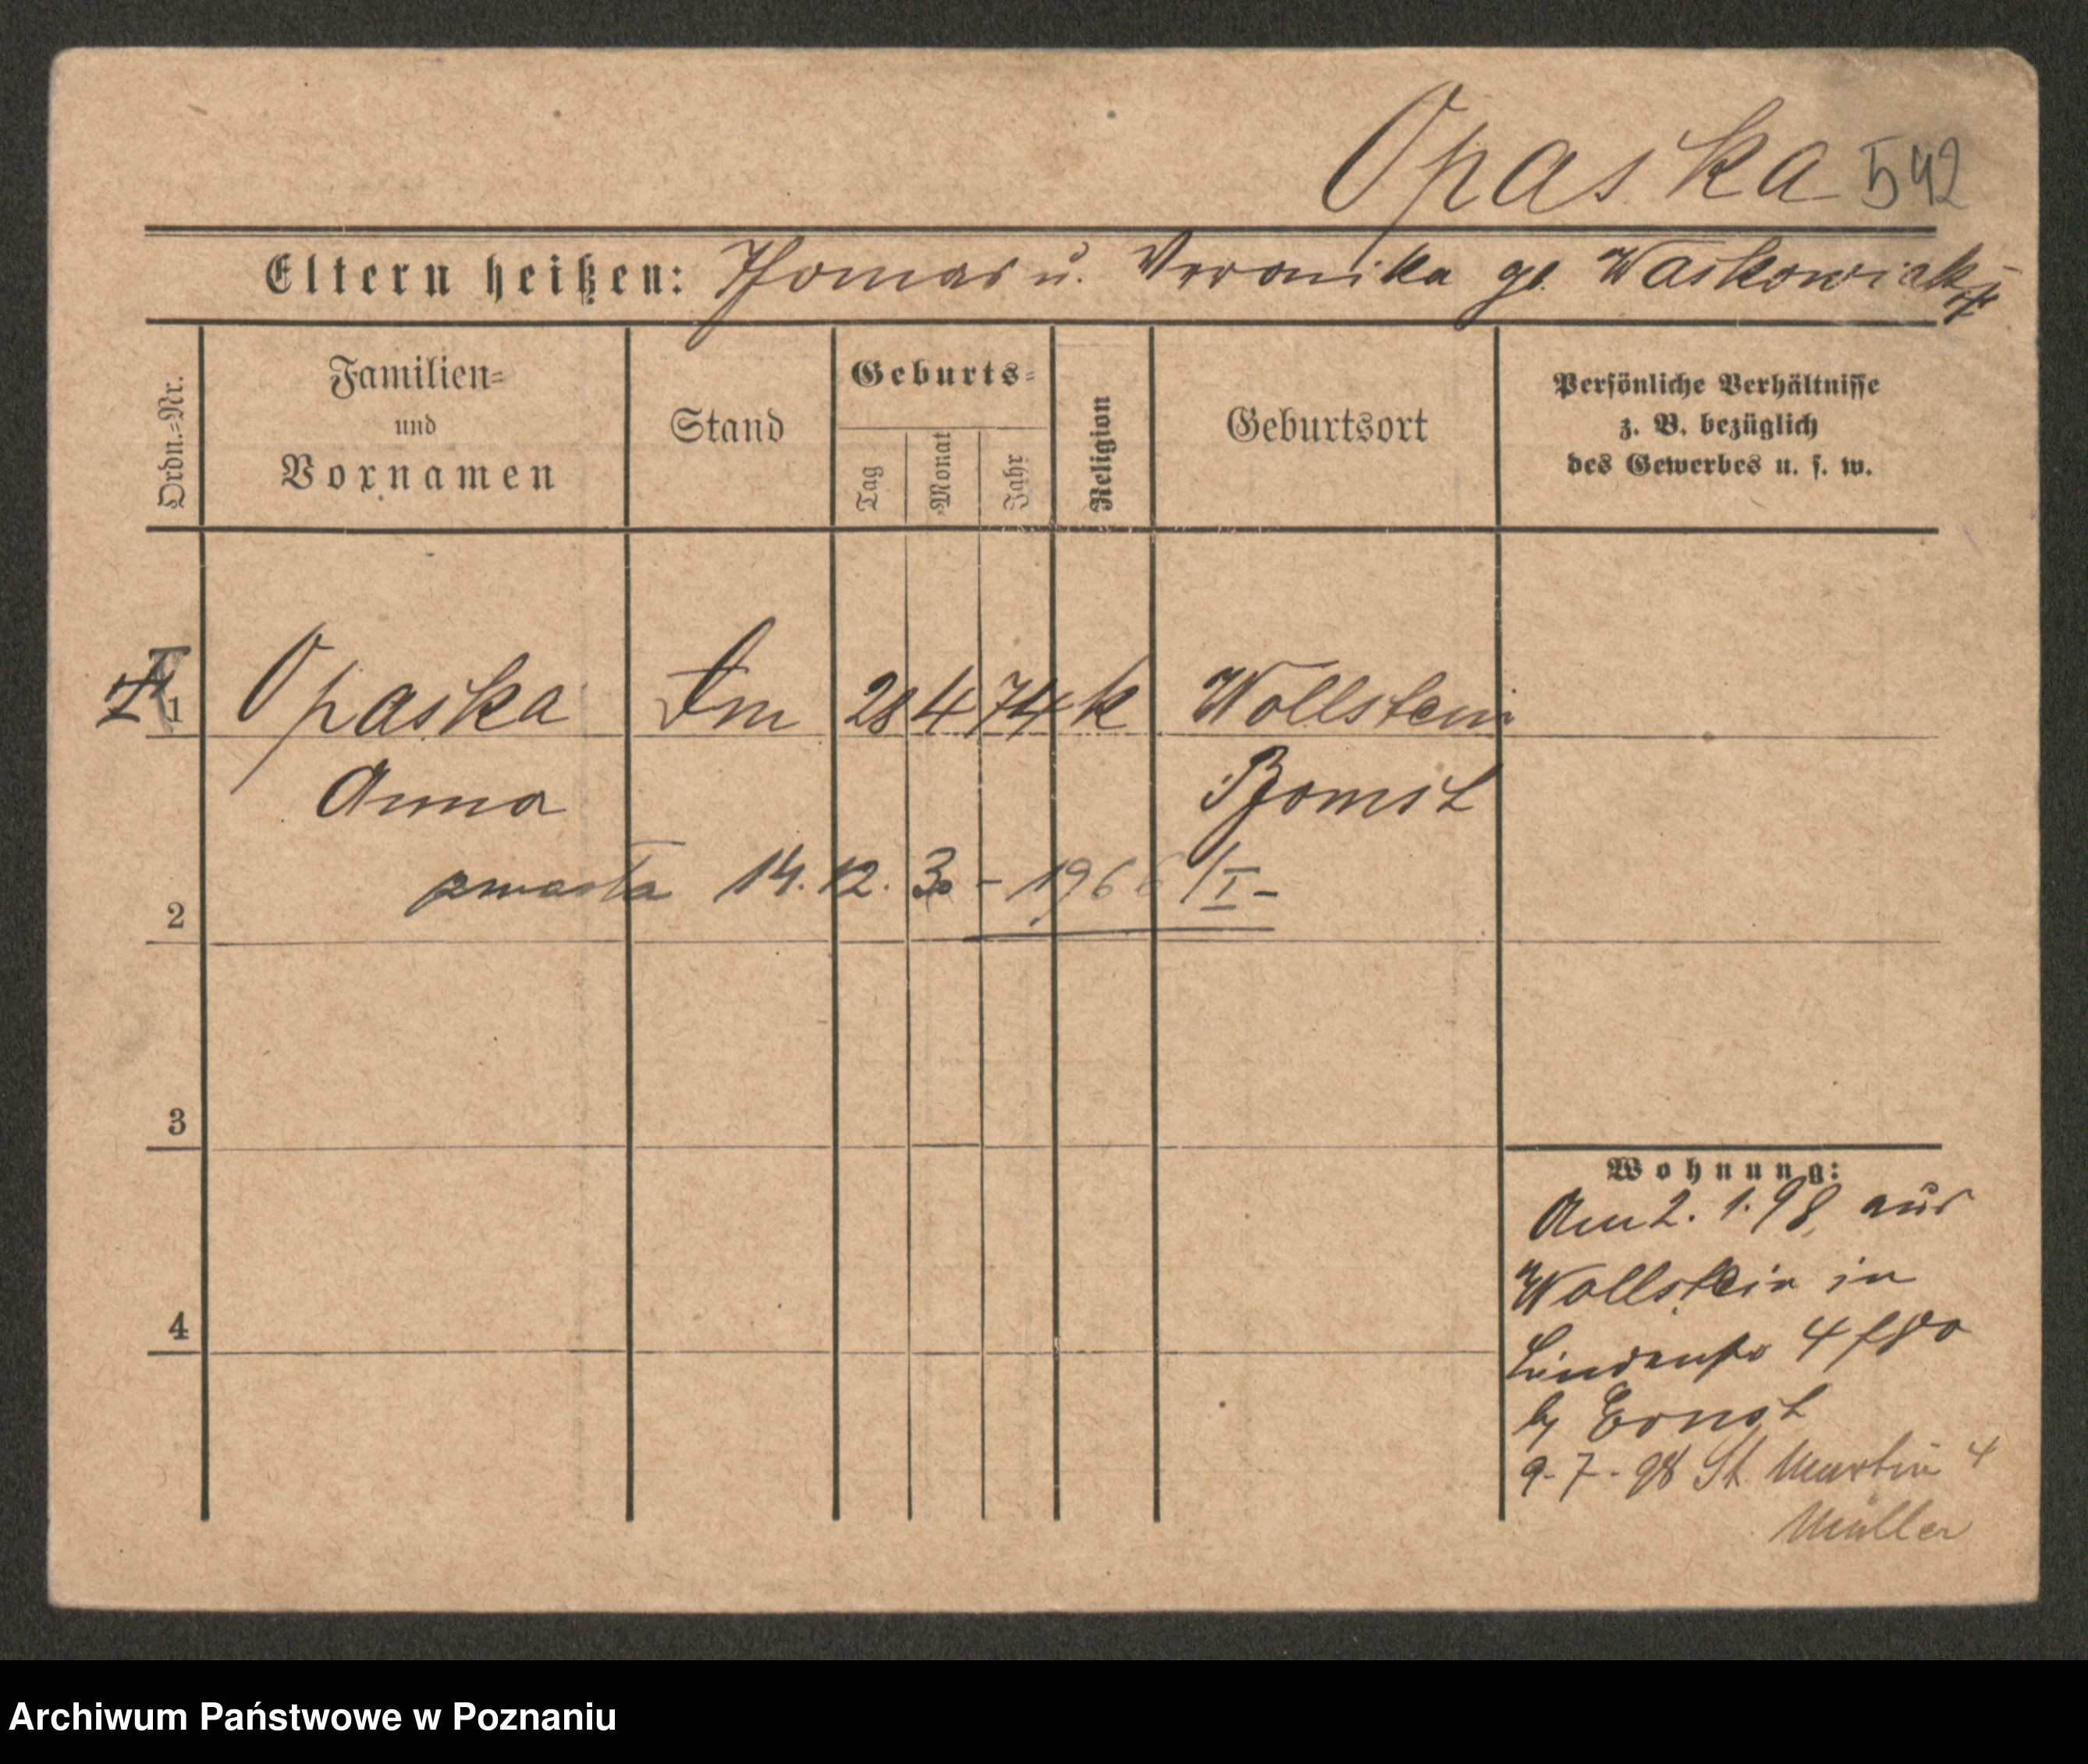 Opaska 542
Eltern heißen: Thomas u. Veronika gb. Waskowiak
Ordn.=Nr.
Familien=
und
Vornamen
Stand
Geburts=
Tag
Monat
Jahr
Religion
Geburtsort
Persönliche Verhältnisse
z. B. bezüglich
des Gewerbes u. s. w.
1 Opaska 28 4 74 k Wollstein
Anna Bomst
2 zmarła 14. 12. 30 - 1966/I -
3
4
Wohnung:
Am 2. 1. 98 aus
Wollstein in
Lindenstr 4
b/ Ernst
9. 7. 98 St. Martin 4
Müller
Archiwum Państwowe w Poznaniu